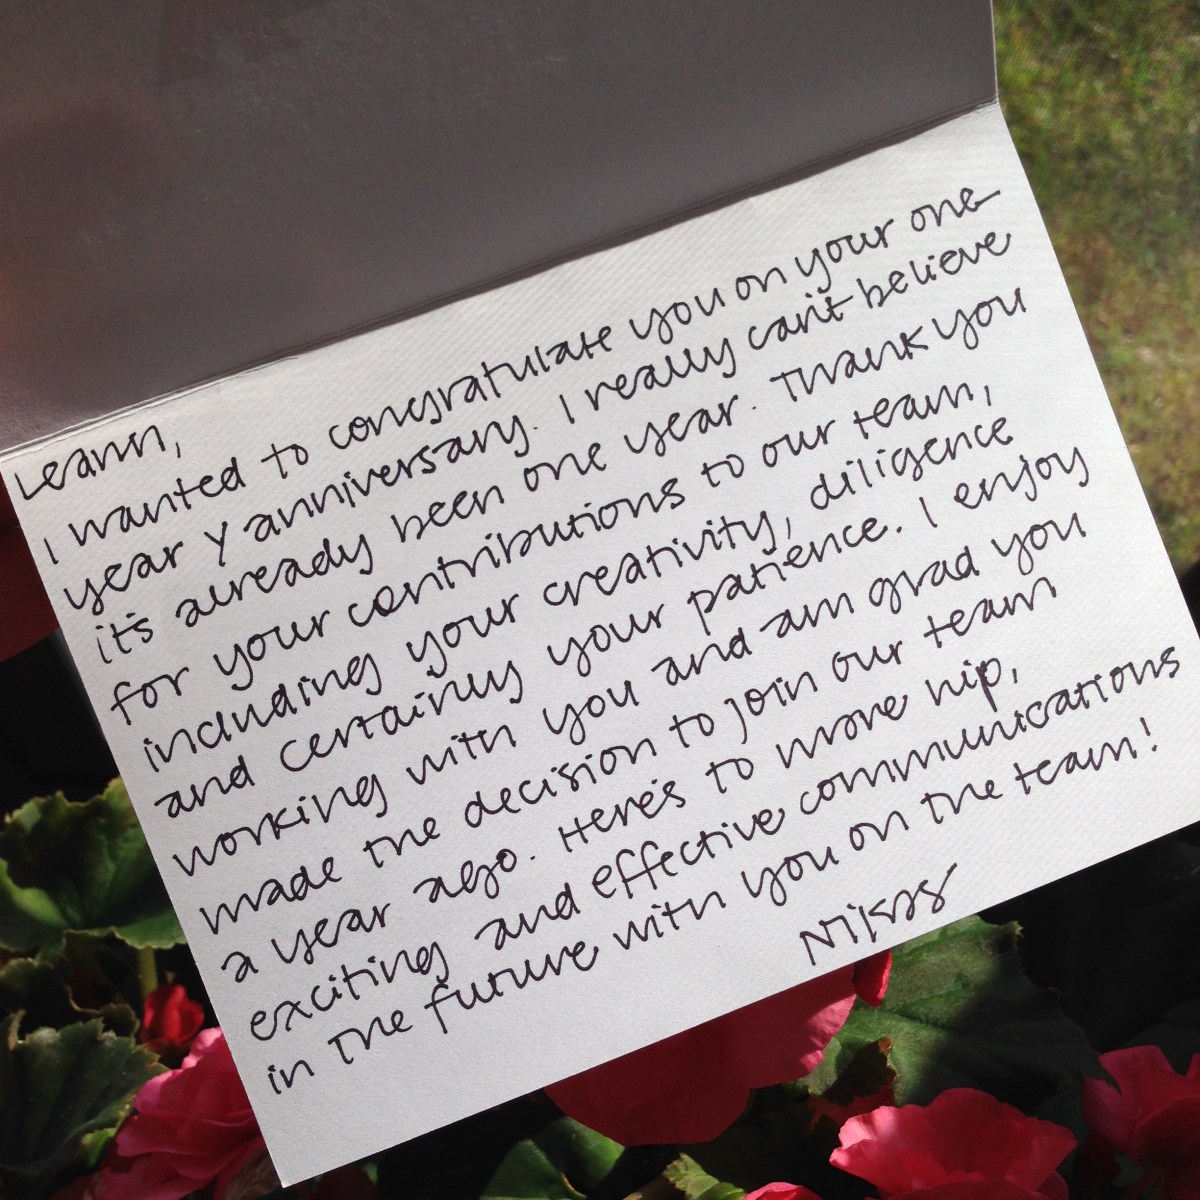 Leann,
I wanted to congratulate you on your one
year Y anniversary. I really can't believe
it's already been one year. Thank you
for your contributions to our team,
including your creativity, diligence
and certainly your patience. I enjoy
working with you and am glad you
made the decision to join our team
a year ago. Here's to more hip,
exciting and effective communications
in the future with you on the team!